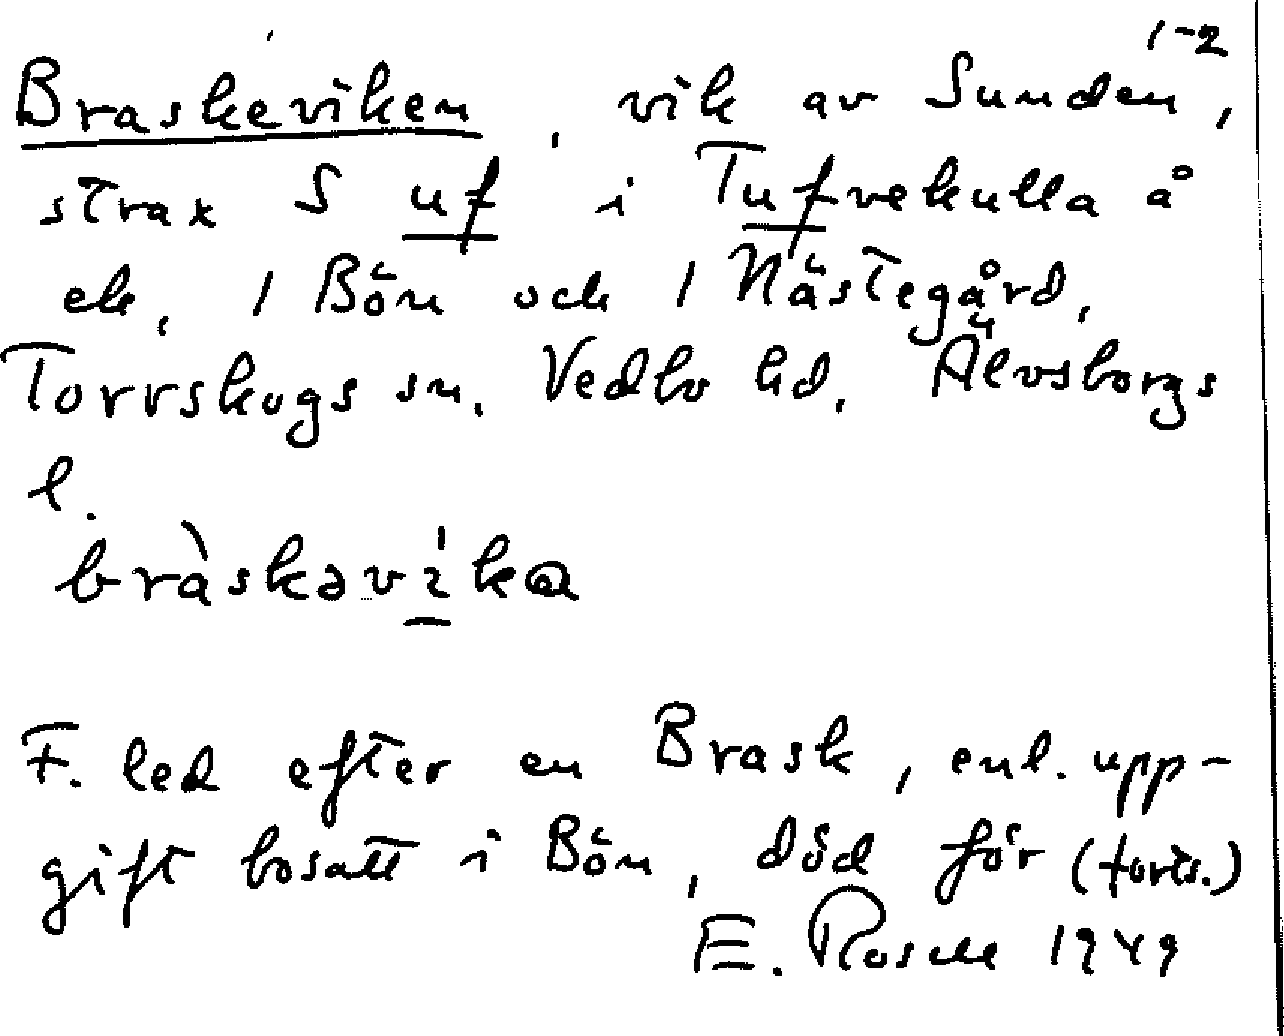 1-2
Braskeviken, vik av Sunden,
strax S uf i Tufvekulla å
ek, 1 Bön och 1 Nästegård,
Torrskogs sn. Vedbo hd. Älvsborgs
l.
bràskəvika
F. led efter en Brask, enl. upp-
gift bosatt i Bön, död för (forts.)
E. Rosell 1949